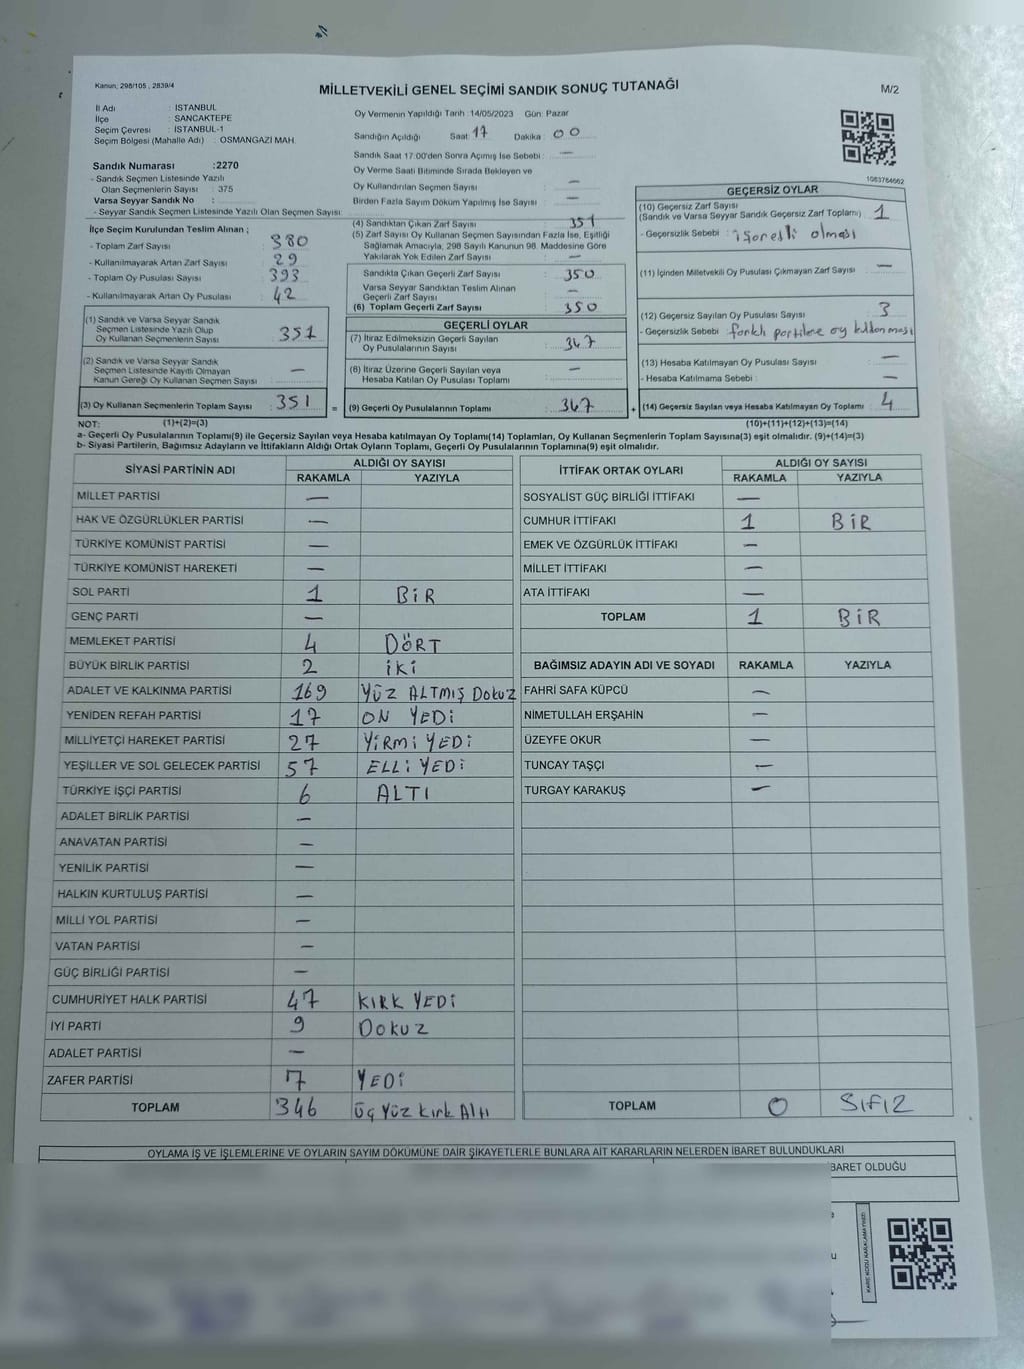 Kanun; 298/105 , 2839/4
MİLLETVEKİLİ GENEL SEÇİMİ SANDIK SONUÇ TUTANAĞI
M/2
İl Adı : İSTANBUL
İlçe : SANCAKTEPE
Seçim Çevresi : İSTANBUL-1
Seçim Bölgesi (Mahalle Adı) : OSMANGAZİ MAH.
Sandık Numarası :2270
- Sandık Seçmen Listesinde Yazılı
Olan Seçmenlerin Sayısı : 375
Varsa Seyyar Sandık No :
- Seyyar Sandık Seçmen Listesinde Yazılı Olan Seçmen Sayısı
Oy Vermenin Yapıldığı Tarih :14/05/2023 Gün: Pazar
Sandığın Açıldığı Saat: 17 Dakika : 00
Sandık Saat 17:00'den Sonra Açımış İse Sebebi : —
Oy Verme Saati Bitiminde Sırada Bekleyen ve
Oy Kullandırılan Seçmen Sayısı : —
Birden Fazla Sayım Döküm Yapılmış İse Sayısı : —
İlçe Seçim Kurulundan Teslim Alınan ;
- Toplam Zarf Sayısı : 380
- Kullanılmayarak Artan Zarf Sayısı : 29
- Toplam Oy Pusulası Sayısı : 393
- Kullanılmayarak Artan Oy Pusulası : 42
(1) Sandık ve Varsa Seyyar Sandık
Seçmen Listesinde Yazılı Olup
Oy Kullanan Seçmenlerin Sayısı : 351
(2) Sandık ve Varsa Seyyar Sandık
Seçmen Listesinde Kayıtlı Olmayan
Kanun Gereği Oy Kullanan Seçmen Sayısı : —
(3) Oy Kullanan Seçmenlerin Toplam Sayısı : 351
(4) Sandıktan Çıkan Zarf Sayısı : 351
(5) Zarf Sayısı Oy Kullanan Seçmen Sayısından Fazla İse, Eşitliği
Sağlamak Amacıyla, 298 Sayılı Kanunun 98. Maddesine Göre
Yakılarak Yok Edilen Zarf Sayısı : —
Sandıkta Çıkan Geçerli Zarf Sayısı : 350
Varsa Seyyar Sandıktan Teslim Alınan
Geçerli Zarf Sayısı : —
(6) Toplam Geçerli Zarf Sayısı : 350
GEÇERLİ OYLAR
(7) İtiraz Edilmeksizin Geçerli Sayılan
Oy Pusulalarının Sayısı : 347
(8) İtiraz Üzerine Geçerli Sayılan veya
Hesaba Katılan Oy Pusulası Toplamı : —
= (9) Geçerli Oy Pusulalarının Toplamı : 347
1083764662
GEÇERSİZ OYLAR
(10) Geçersiz Zarf Sayısı
(Sandık ve Varsa Seyyar Sandık Geçersiz Zarf Toplamı) : 1
- Geçersizlik Sebebi : işaretli olması
(11) İçinden Milletvekili Oy Pusulası Çıkmayan Zarf Sayısı : —
(12) Geçersiz Sayılan Oy Pusulası Sayısı : 3
- Geçersizlik Sebebi : farklı partilere oy kullanması
(13) Hesaba Katılmayan Oy Pusulası Sayısı : —
- Hesaba Katılmama Sebebi : —
+ (14) Geçersiz Sayılan veya Hesaba Katılmayan Oy Toplamı : 4
NOT: (1)+(2)=(3) (10)+(11)+(12)+(13)=(14)
a- Geçerli Oy Pusulalarının Toplamı(9) ile Geçersiz Sayılan veya Hesaba katılmayan Oy Toplamı(14) Toplamları, Oy Kullanan Seçmenlerin Toplam Sayısına(3) eşit olmalıdır. (9)+(14)=(3)
b- Siyasi Partilerin, Bağımsız Adayların ve İttifakların Aldığı Ortak Oyların Toplamı, Geçerli Oy Pusulalarının Toplamına(9) eşit olmalıdır.
SİYASİ PARTİNİN ADI ALDIĞI OY SAYISI
RAKAMLA YAZIYLA
MİLLET PARTİSİ —
HAK VE ÖZGÜRLÜKLER PARTİSİ —
TÜRKİYE KOMÜNİST PARTİSİ —
TÜRKİYE KOMÜNİST HAREKETİ —
SOL PARTİ 1 BİR
GENÇ PARTİ —
MEMLEKET PARTİSİ 4 DÖRT
BÜYÜK BİRLİK PARTİSİ 2 İKİ
ADALET VE KALKINMA PARTİSİ 169 YÜZ ALTMIŞ DOKUZ
YENİDEN REFAH PARTİSİ 17 ON YEDİ
MİLLİYETÇİ HAREKET PARTİSİ 27 YİRMİ YEDİ
YEŞİLLER VE SOL GELECEK PARTİSİ 57 ELLİ YEDİ
TÜRKİYE İŞÇİ PARTİSİ 6 ALTI
ADALET BİRLİK PARTİSİ —
ANAVATAN PARTİSİ —
YENİLİK PARTİSİ —
HALKIN KURTULUŞ PARTİSİ —
MİLLİ YOL PARTİSİ —
VATAN PARTİSİ —
GÜÇ BİRLİĞİ PARTİSİ —
CUMHURİYET HALK PARTİSİ 47 KIRK YEDİ
İYİ PARTİ 9 DOKUZ
ADALET PARTİSİ —
ZAFER PARTİSİ 7 YEDİ
TOPLAM 346 ÜÇ YÜZ Kırk Altı
İTTİFAK ORTAK OYLARI ALDIĞI OY SAYISI
RAKAMLA YAZIYLA
SOSYALİST GÜÇ BİRLİĞİ İTTİFAKI —
CUMHUR İTTİFAKI 1 BİR
EMEK VE ÖZGÜRLÜK İTTİFAKI —
MİLLET İTTİFAKI —
ATA İTTİFAKI —
TOPLAM 1 BİR
BAĞIMSIZ ADAYIN ADI VE SOYADI RAKAMLA YAZIYLA
FAHRİ SAFA KÜPCÜ —
NİMETULLAH ERŞAHİN —
ÜZEYFE OKUR —
TUNCAY TAŞÇI —
TURGAY KARAKUŞ —
TOPLAM 0 SIFIR
OYLAMA İŞ VE İŞLEMLERİNE VE OYLARIN SAYIM DÖKÜMÜNE DAİR ŞİKAYETLERLE BUNLARA AİT KARARLARIN NELERDEN İBARET BULUNDUKLARI
BARET OLDUĞU